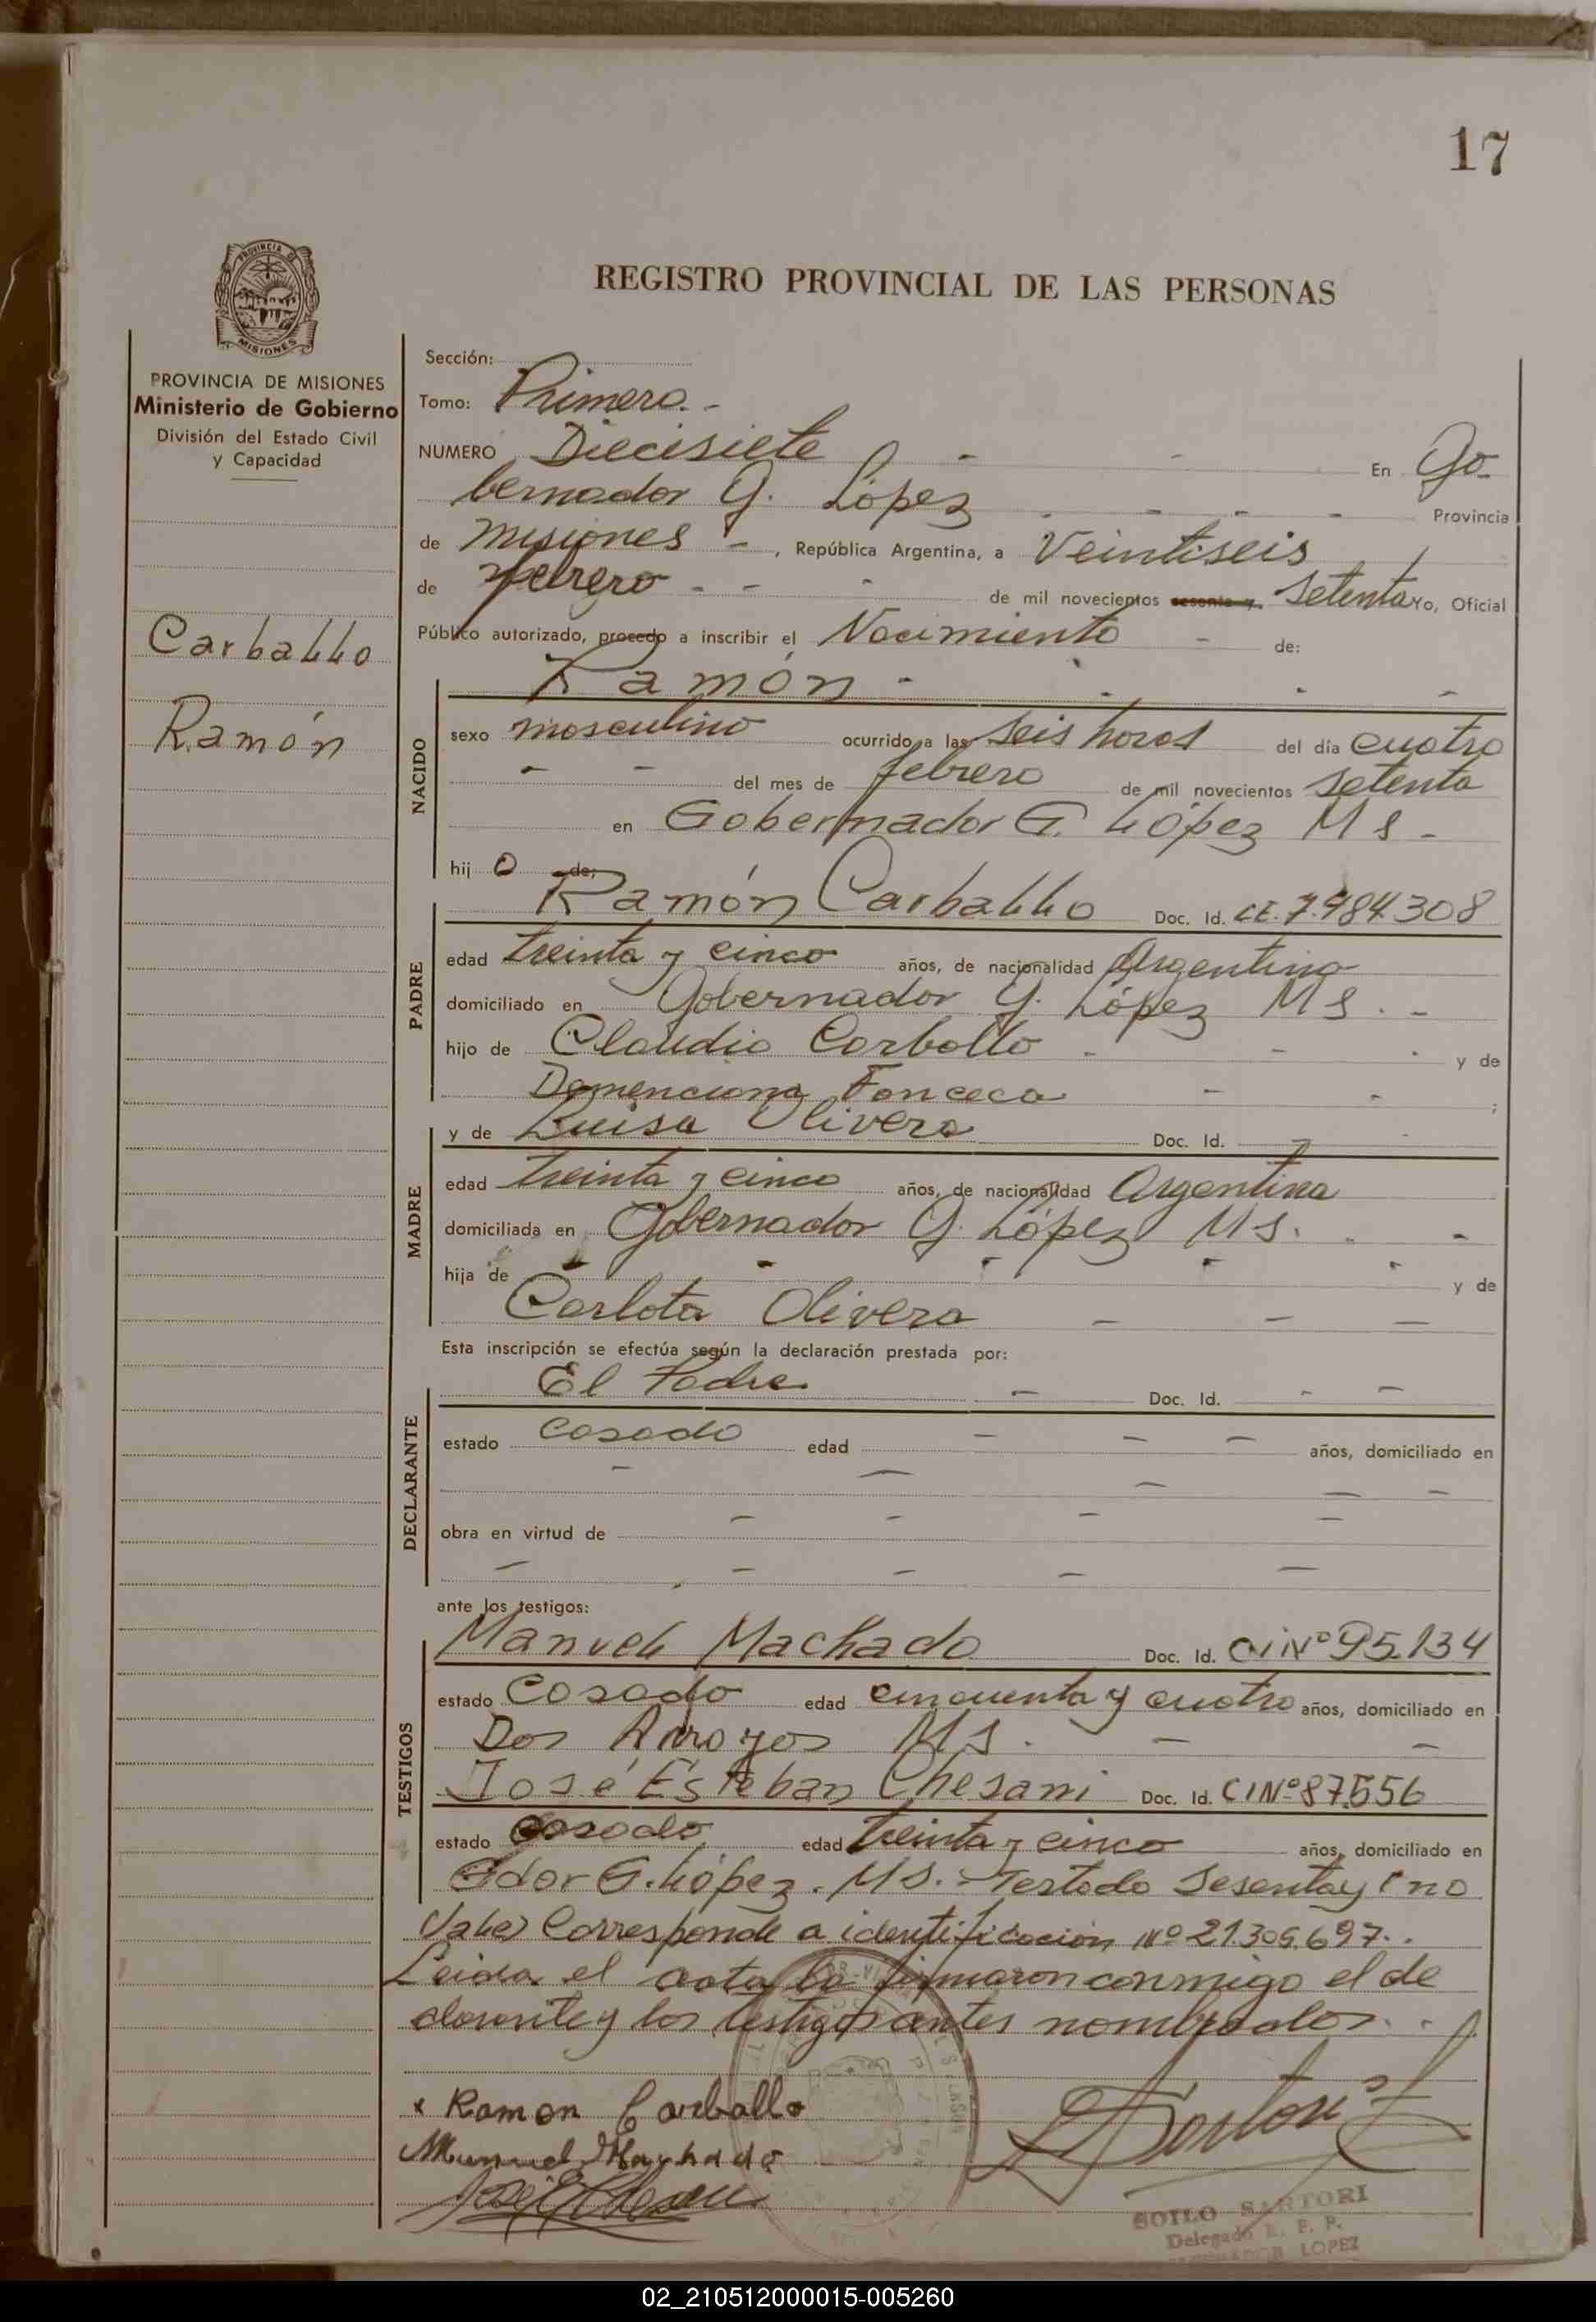 17
PROVINCIA DE
MISIONES
REGISTRO PROVINCIAL DE LAS PERSONAS
PROVINCIA DE MISIONES
Ministerio de Gobierno
División del Estado Civil
y Capacidad
Carballo
Ramón
Sección:
Tomo: Primero. -
NUMERO Diecisiete - - En Go-
bernador G. López - - - - Provincia
de Misiones - , República Argentina, a Veintiseis
de febrero - - - de mil novecientos sesenta y Setenta Yo, Oficial
Público autorizado, procedo a inscribir el Nacimiento - de:
Ramón - - - -
NACIDO
sexo masculino ocurrido a las seis horas del día cuatro
- - del mes de febrero de mil novecientos setenta
en Gobernador G. López MS -
hij o de:
PADRE
Ramón Carballo Doc. Id. LE. 7.484.308
edad treinta y cinco años, de nacionalidad Argentina
domiciliado en Gobernador G. López MS. -
hijo de Claudio Carballo - - - y de
Demenciana Fonceca - - ;
MADRE
y de Luisa Olivera Doc. Id. - -
edad treinta y cinco años, de nacionalidad Argentina
domiciliada en Gobernador G. López MS. - -
hija de - - - - - y de
Carlota Olivera - - -
Esta inscripción se efectúa según la declaración prestada por:
DECLARANTE
El Padre - Doc. Id. - -
estado Casado edad - - - años, domiciliado en
- - - - -
obra en virtud de - - - -
- - - - -
ante los testigos:
TESTIGOS
Manuel Machado Doc. Id. CI Nº 95.134
estado Casado edad cincuenta y cuatro años, domiciliado en
Dos Arroyos MS. - -
José Esteban Chesani Doc. Id. CI Nº 87.556
estado Casado edad treinta y cinco años, domiciliado en
Gdor G. López. MS. - Testado Sesenta y no
Vale) Corresponde a identificación Nº 21.305.697. .
Leida el acta la firmaron conmigo el de
clarante y los testigos antes nombrados. .
x Ramon Carballo
Manuel Machado
SOILO SARTORI
Delegado R. P. P.
LOPEZ
02_210512000015-005260